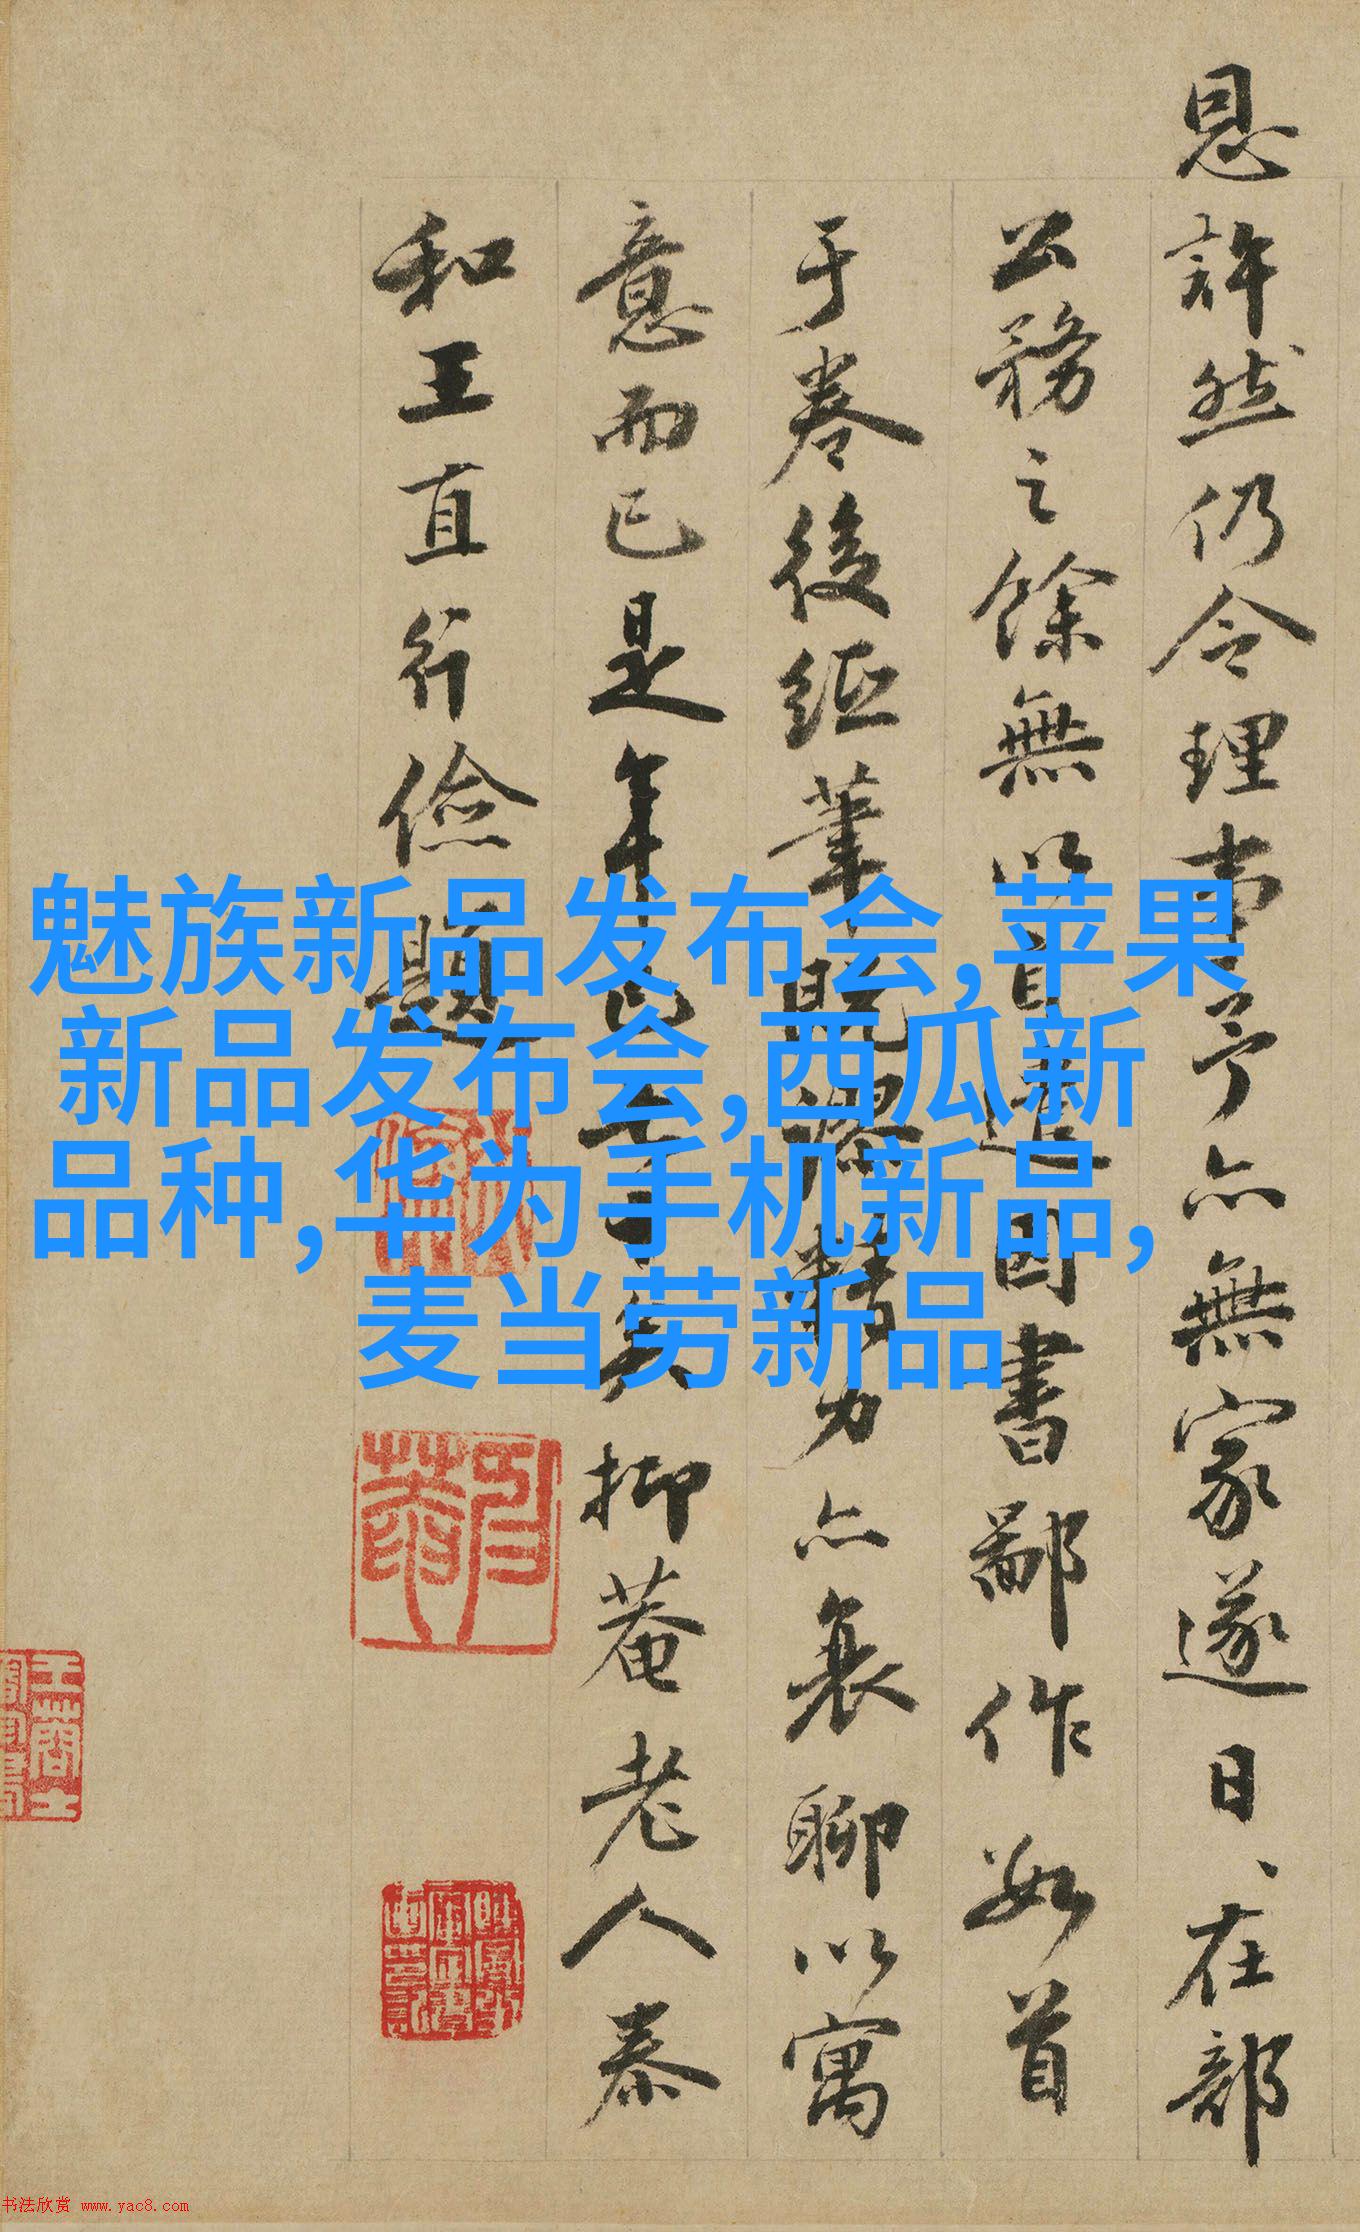 恩許然仍令理事予亦無家遂日、在部
公務之餘無以自遣因書鄙作數首
于卷後紙筆既澀精力亦衰聊以寓
意而已是年七十矣抑菴老人泰
和王直行儉題
魅族新品发布会,苹果
新品发布会,西瓜新
品种,华为手机新品,
麦当劳新品
书法欣赏 www.yac8.com